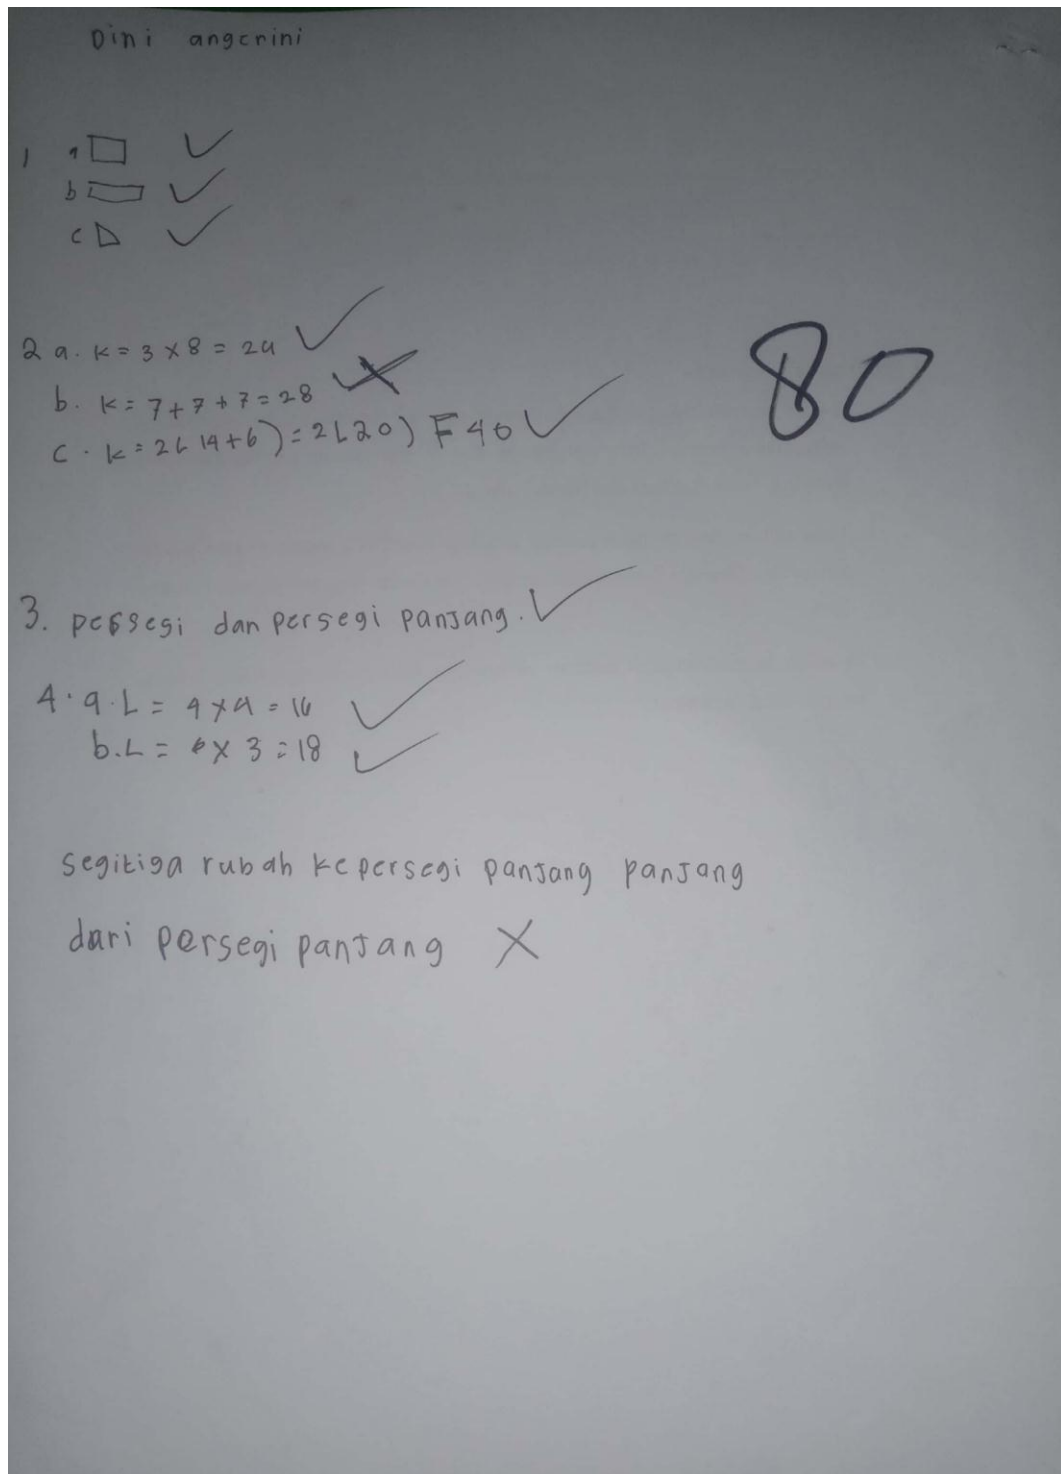 Dini angcrini
1 a
b
c
2 a. K = 3 x 8 = 24
b. K = 7 + 7 + 7 = 28
c. K = 2( 14 + 6 ) = 2(20) = 40
80
3. persegi dan persegi panjang.
4. a. L = 4 x 4 = 16
b. L = 6 x 3 = 18
segitiga rubah ke persegi panjang panjang
dari persegi panjang